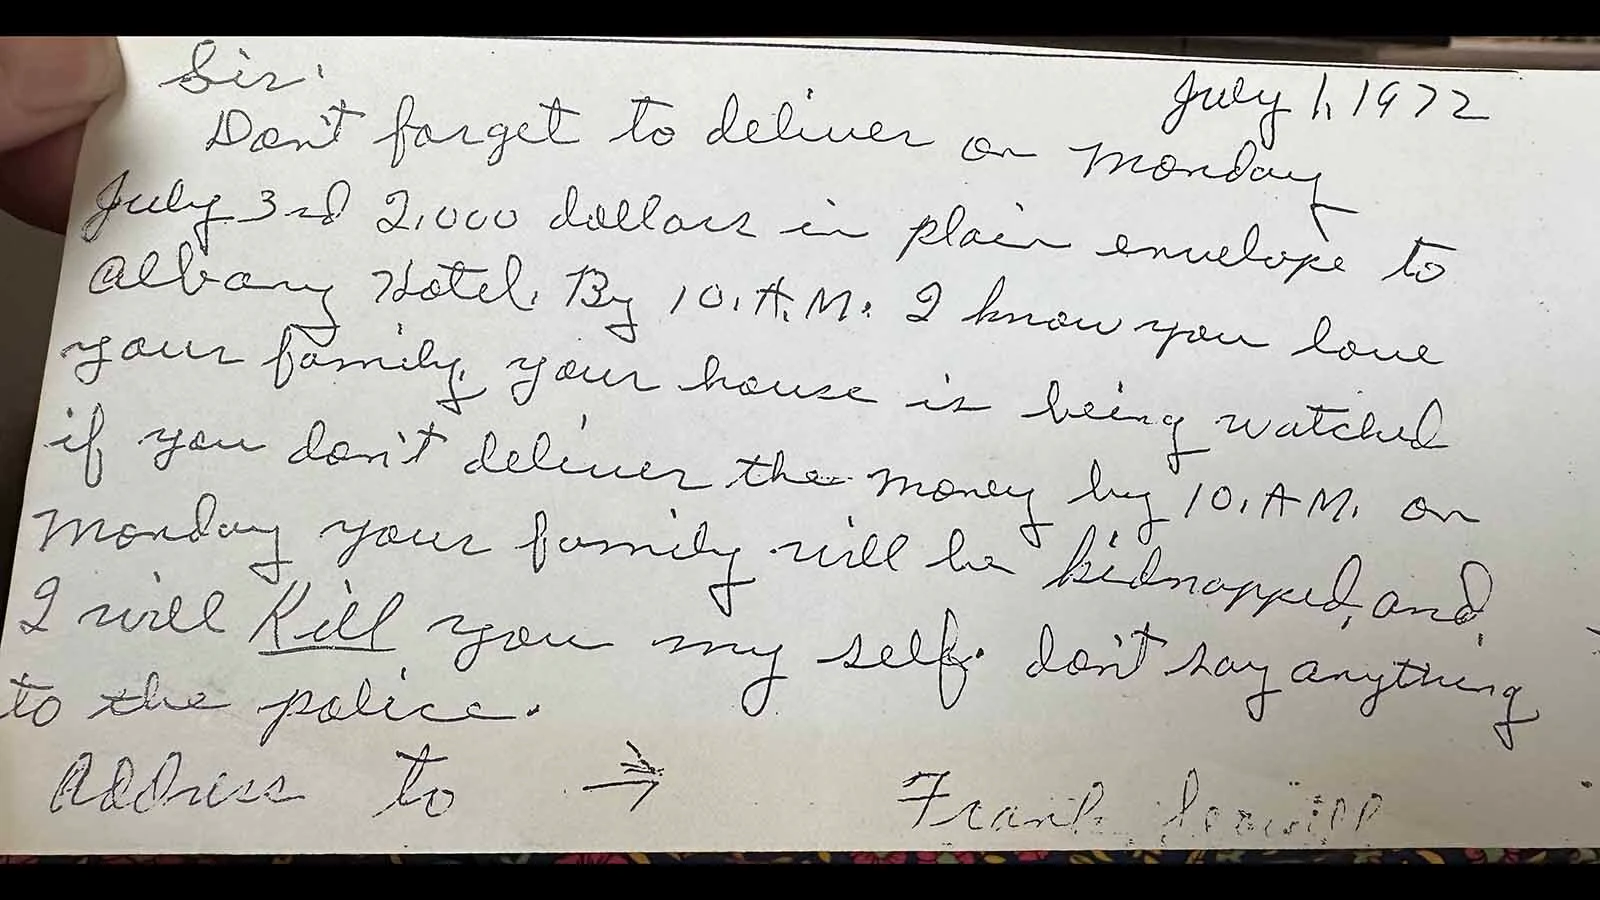 Sir:
July 1, 1972
Don't forget to deliver on Monday
July 3rd 2,000 dollars in plain envelope to
Albany Hotel. By 10. A.M. I know you love
your family, your house is being watched
if you don't deliver the money by 10. A M. on
Monday your family will be kidnapped, and
I will Kill you my self. don't say anything
to the police.
Address to → Frank